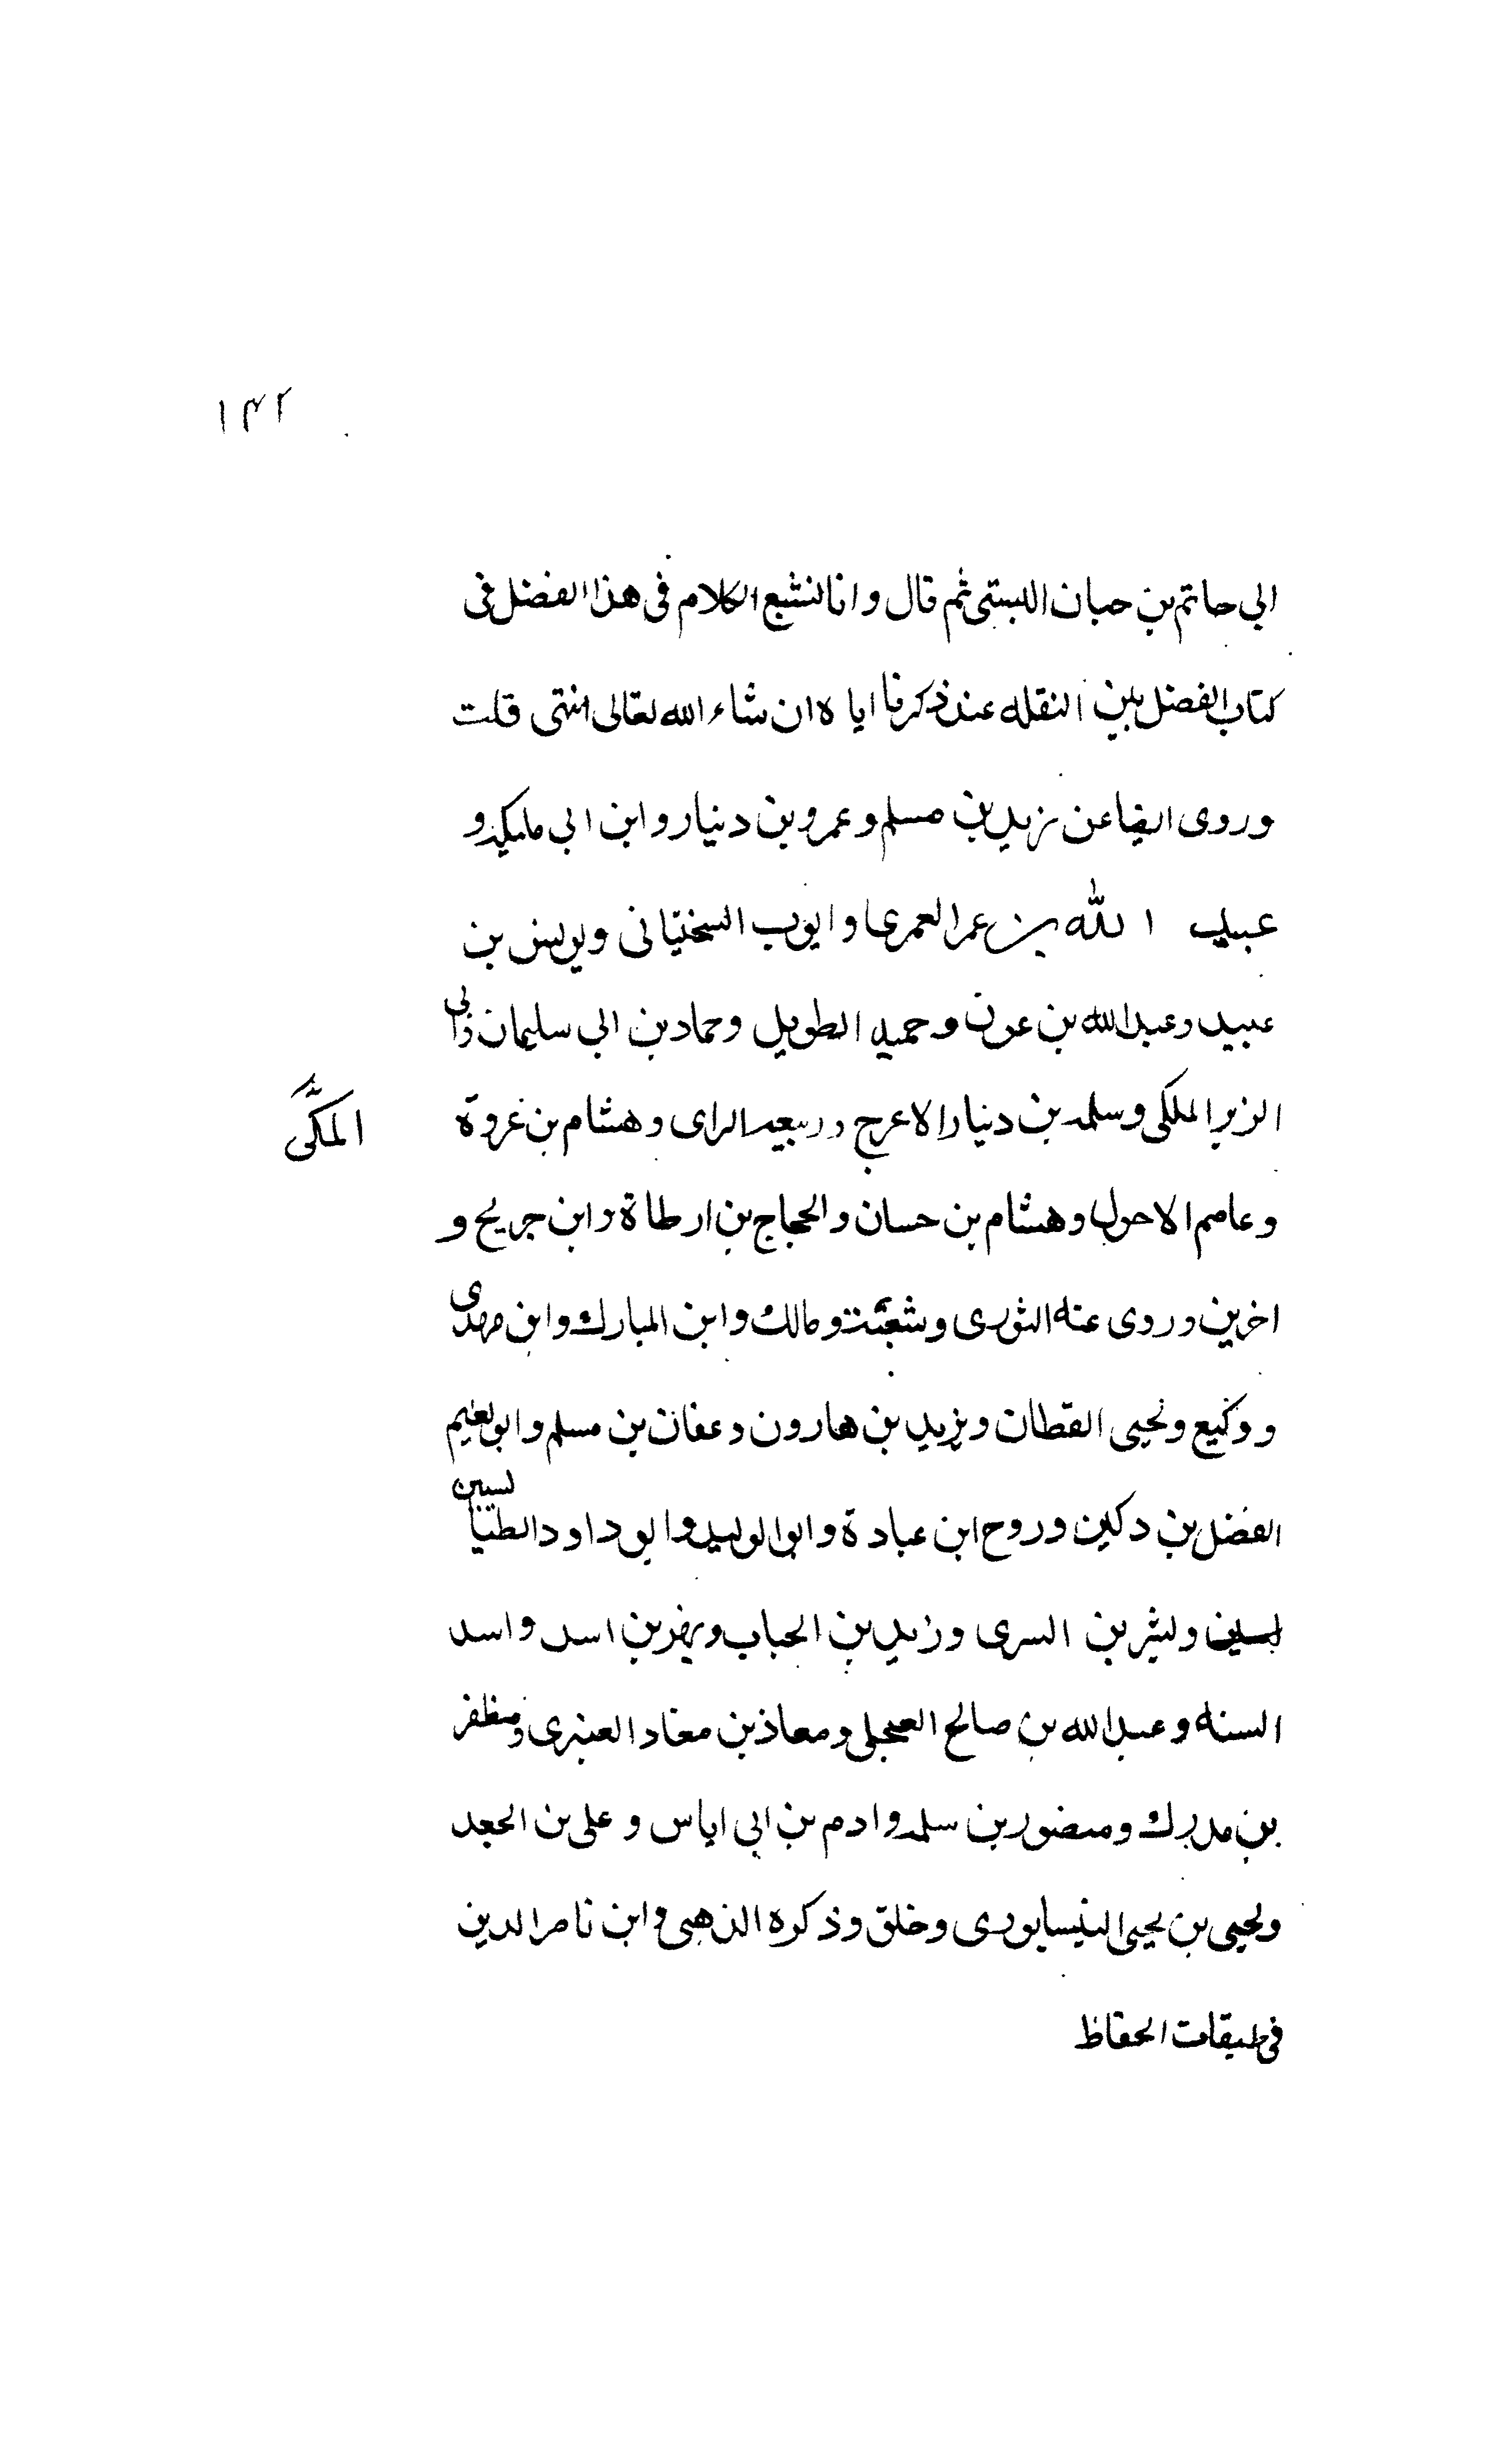 ١٤٢
ابي حاتم بن حبان البستي ثم قال وانا لنشبع الكلام في هذا الفضل في
كتاب الفضل بين النقلة عند ذكرنا اياه ان شاء الله تعالى انتهى قلت
وروى ايضا عن زيد بن مسلم وعمرو بن دينار وابن ابي مليكة و
عبيد الله بن عمر العمرى وايوب السختياني ويونس بن
عبيد وعبد الله بن عون وحميد الطويل وحماد بن ابي سليمان وابي
الزبير الملكى وسلمة بن دينار الاعرج وربيعة الراى وهشام بن عروة
المكى
وعاصم الاحول وهشام بن حسان والحجاج بن ارطاة وابن جريح و
اخرين وروى عنه الثورى وشعبة ومالك وابن المبارك وابن مهدى
ووكيع ويحيى القطان ويزيد بن هارون وعفان بن مسلم وابو نعيم
الفضل بن دكين وروح ابن عبادة وابو الوليد وابو داود الطيالسيين
لسيين وبشر بن السرى وزيد بن الحباب وبهز بن اسد واسد
السنه وعبد الله بن صالح العجلى ومعاذ بن معاد العنبرى ومظفر
بن مدرك ومنصور بن سلمة وادم بن ابى اياس وعلى بن الجعد
ويحيى بن يحيى النيسابورى وخلق وذكره الذهبى وابن ناصر الدين
في طبقات الحفاظ